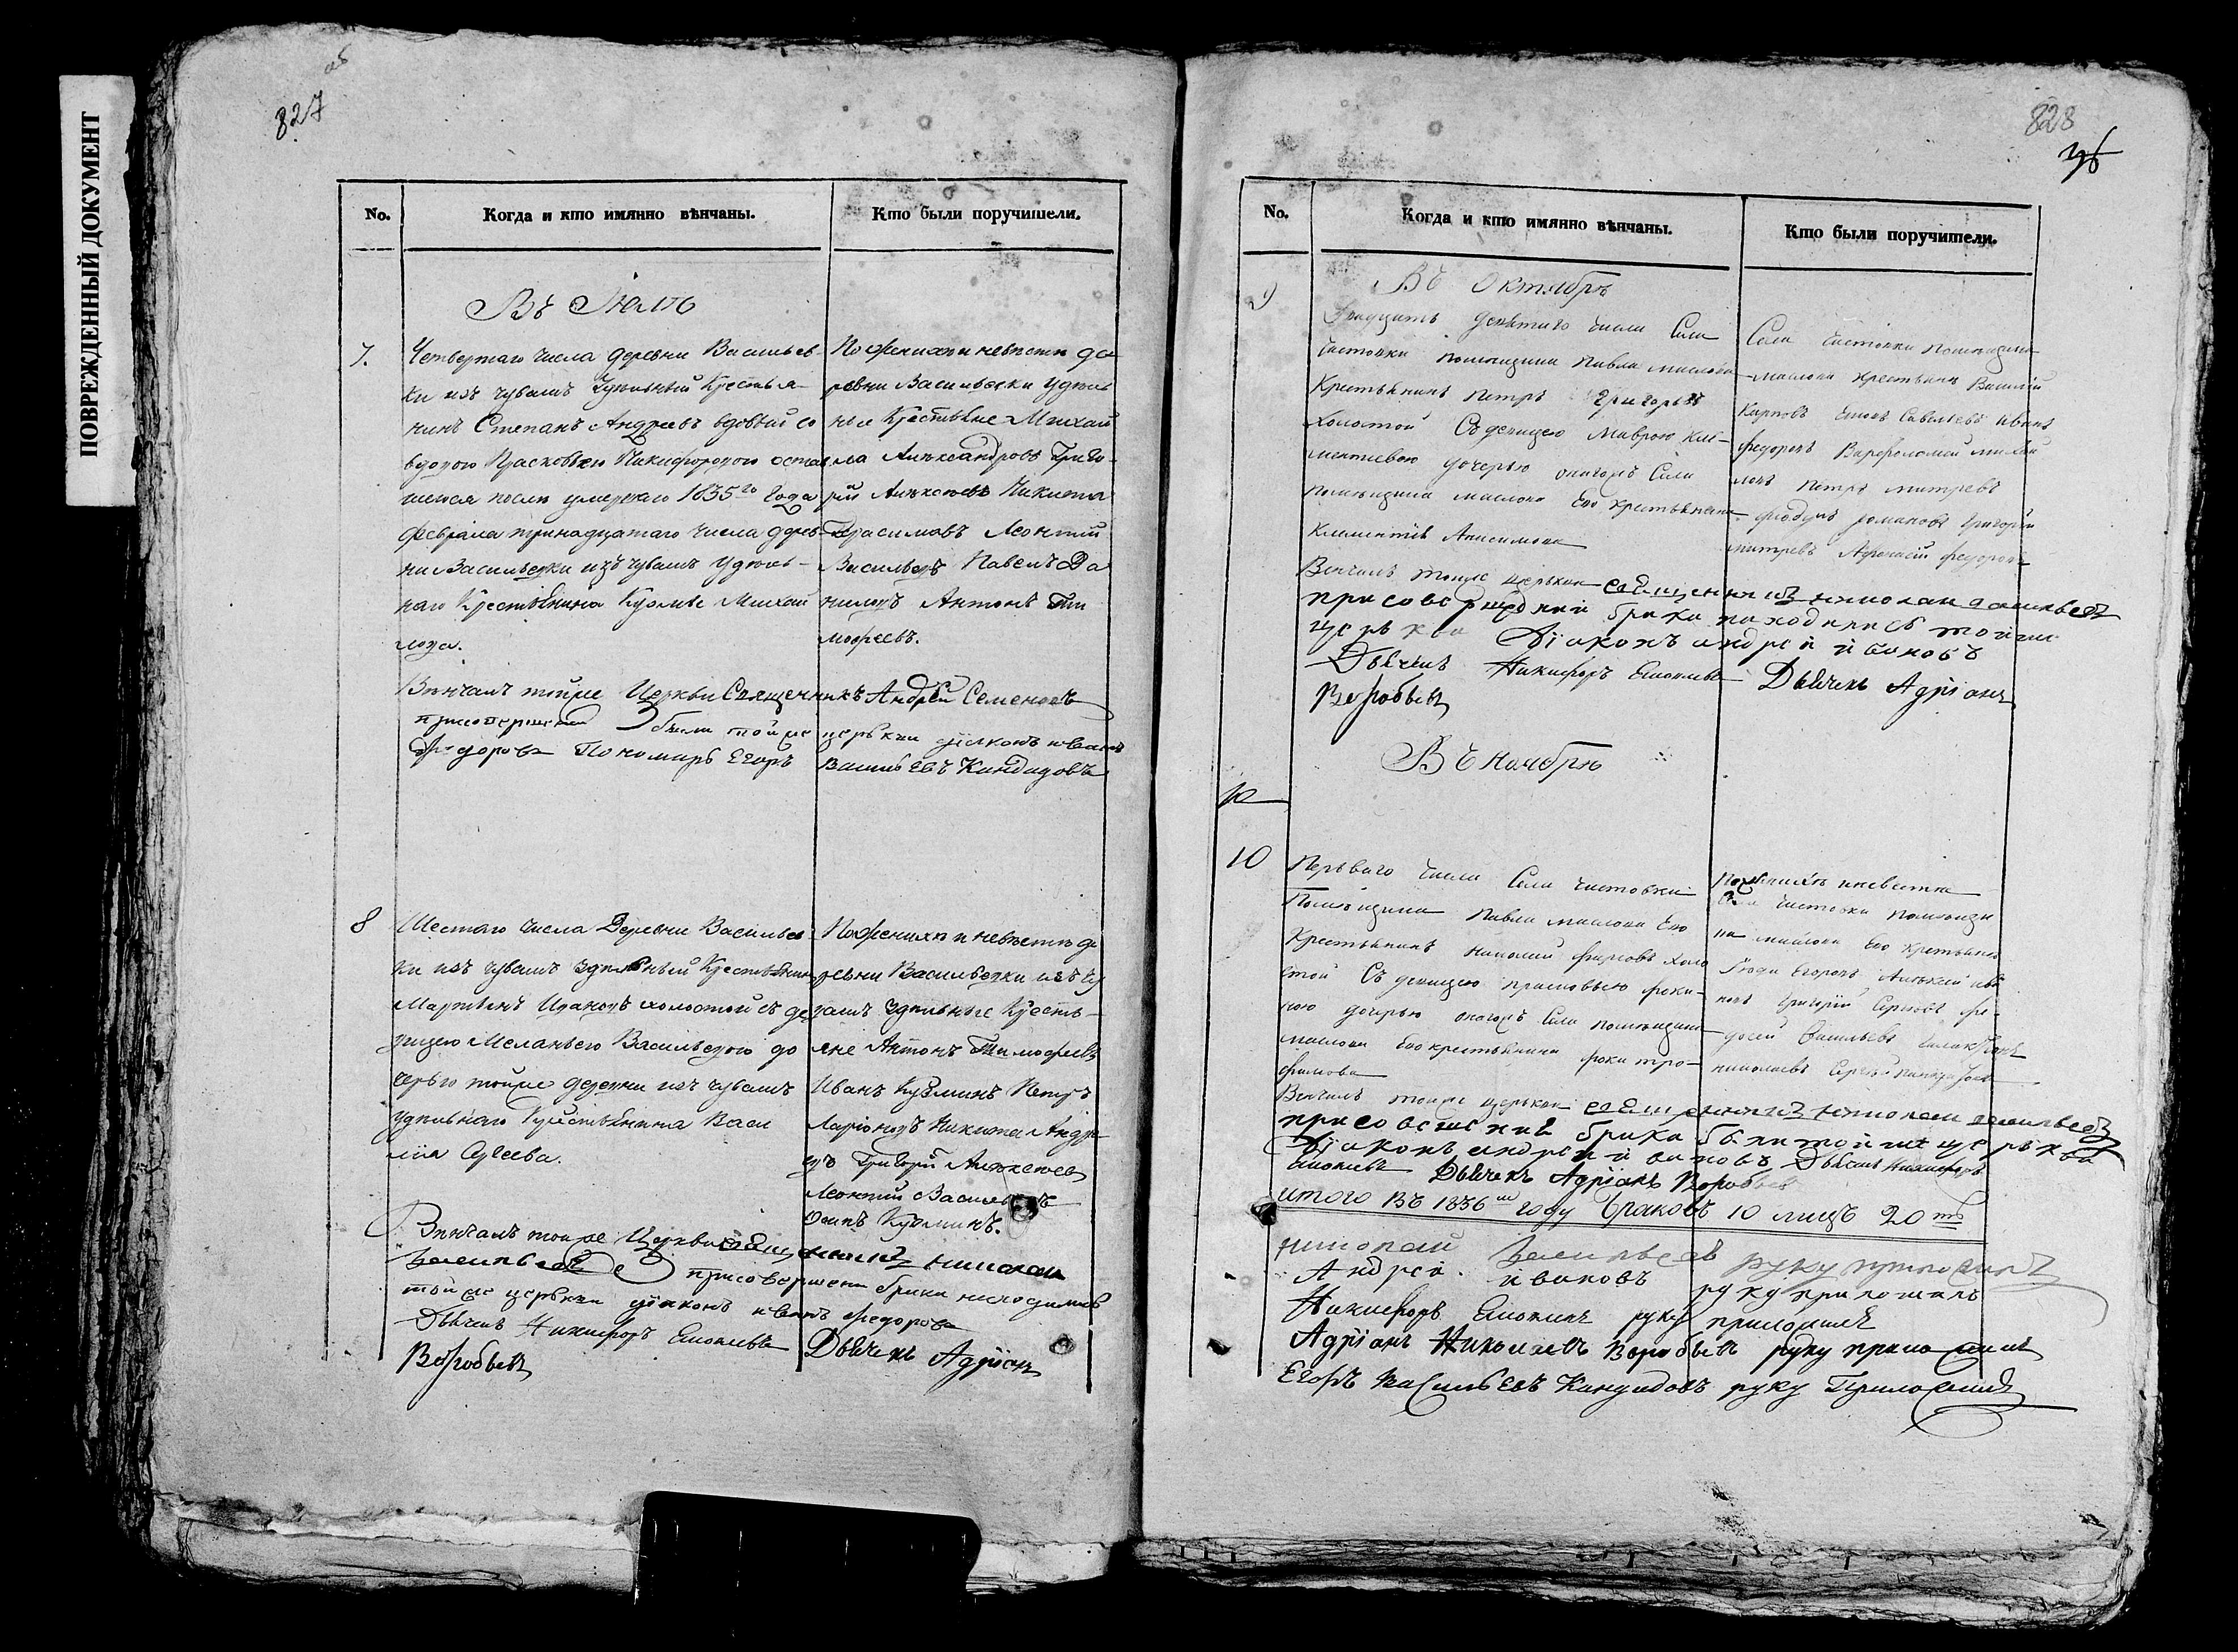 ПОВРЕЖДЕННЫЙ ДОКУМЕНТ
827
No.
Когда и кто имянно вѣнчаны.
Кто были поручители.
Въ Июлѣ
7.
Четвертаго числа деревни Васильев-
ки изъ чувашъ удѣльный крестья-
нинъ Степанъ Андреевъ вдовый со
вдовою Прасковьею Никифоровою остав
шеюся послѣ умершаго 1835го года
февраля тринадцатаго числа дерев-
ни Васильевки изъ чувашъ удѣль-
наго крестьянина Кузьмы Михай
лова.
По женихѣ и невѣстѣ де-
ревни Васильевки удѣль
ные крестьяне Михай
ла Александровъ Григо-
рій Алексѣевъ Никита
Герасимовъ Леонтій
Васильевъ Павелъ Да
ниловъ Антонъ Ти
мофеевъ.
Вѣнчалъ тойже Церкви Священникъ Андрей Семеновъ
при совершеніи были тойже церкви діяконъ иванъ
федоровъ Пономарь Егоръ Васильевъ Кандидовъ
8
Шестаго числа Деревни Васильев
ки изъ чувашъ удѣльный крестьянинъ
Мартынъ Исаковъ холостой съ де
вицею Меланьею Васильевою до
черью тойже деревни изъ чувашъ
удѣльнаго крестьянина Васи
лия Сергеева.
По женихѣ и невѣстѣ де
ревни Васильевки изъ чу
вашъ удѣльные кресть-
яне Антонъ Тимофеевъ
Иванъ Кузминъ Петръ
Ларіоновъ Никита Андре
евъ Григорій Алексѣевъ
Леонтій Васильевъ
Осипъ Кузминъ.
Вѣнчалъ тойже Церкви священникъ николай
васильевъ при совершеніи брака находились
тойже церкви діяконъ иванъ федоровъ
Дьячекъ Никифоръ Дьячекъ Адріанъ
Воробьевъ
828
No.
Когда и кто имянно вѣнчаны.
Кто были поручители.
9
Въ Октябрѣ
Двадцать девятаго числа Села
Чистовки помѣщика Павла маслова
Крестьянинъ Петръ Григорьевъ
холостой Съ девицею Маврою Кле-
ментиевою дочерью онагожъ Села
помѣщика маслова Его крестьянина
Климентія Анисимова
Села Чистовки помѣщика
маслова крестьяне Василій
Карповъ Савельевъ иванъ
федоровъ Варфоломей михай
ловъ Петръ митревъ
романовъ Григорій
митревъ Афанасій федоровъ
Вѣнчалъ тойже церькви священникъ николай васильевъ
при совершеніи брака находились тойже
церькви Діаконъ андрей ивановъ
Дьячекъ Никифоръ Дьячекъ Адріанъ
Воробьевъ
Въ Ноябрѣ
10
Перьваго числа Села Чистовки
Помѣщика Павла маслова Его
Крестьянинъ николай фирсовъ холо
стой Съ девицею прасковьею фоки-
ною дочерью онагожъ Села помѣщика
маслова Его крестьянина фоки тро-
фимова
По женихѣ и невѣстѣ
Села Чистовки помѣщи
ка маслова Его крестьяне
Егоровъ Алексѣй ива
новъ Григорій Сергѣевъ фе-
досей Васильевъ
николаевъ Сергѣй
Вѣнчалъ тойже церькви священникъ николай васильевъ
при совершеніи брака были тойже церькви
Діаконъ андрей ивановъ Дьячекъ Никифоръ
Дьячекъ Адріанъ Воробьевъ
итого Въ 1836мъ году браковъ 10 лицъ 20ть
николай Васильевъ руку приложилъ
Андрей ивановъ руку приложилъ
Никифоръ руку приложилъ
Адріанъ Николаевъ Воробьевъ руку приложилъ
Егоръ Васильевъ Кандидовъ руку Приложилъ